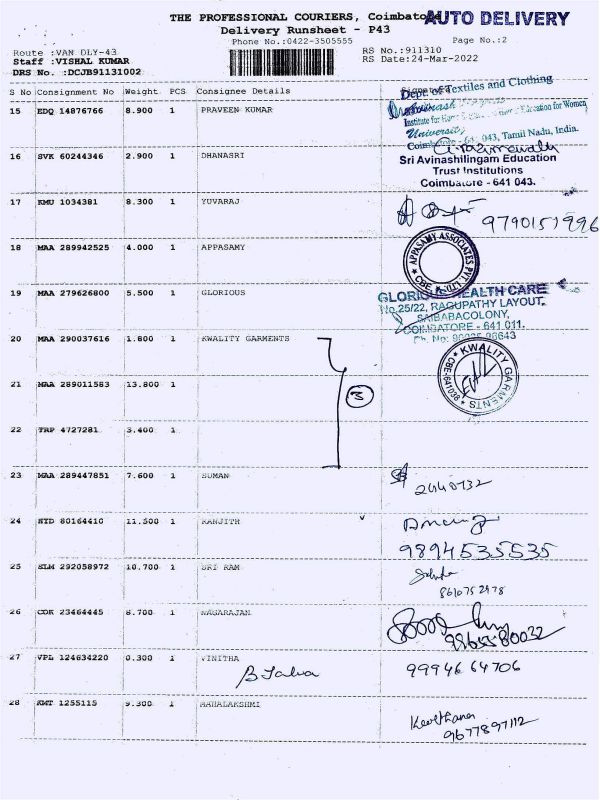 THE PROFESSIONAL COURIERS, Coimbatore
AUTO DELIVERY
Delivery Runsheet - P43
Phone No.:0422-3505555
Page No.:2
Route :VAN DLY-43
RS No.:911310
Staff :VISHAL KUMAR
RS Date:24-Mar-2022
DRS No. :DCJB91131002
S No Consignment No Weight PCS Consignee Details Signature
15 EDQ 14876766 8.900 1 PRAVEEN KUMAR
Dept. of Textiles and Clothing
Institute for Education for Women
University
Coimbatore - 641 043, Tamil Nadu, India.
16 SVK 60244346 2.900 1 DHANASRI
Sri Avinashilingam Education
Trust Institutions
Coimbatore - 641 043.
17 KMU 1034381 8.300 1 YUVARAJ
9790151996
18 MAA 289942525 4.000 1 APPASAMY
APPASAMY ASSOCIATES PVT. LTD. CBE
19 MAA 279626800 5.500 1 GLORIOUS
GLORIOUS HEALTH CARE
No.25/22, RAGUPATHY LAYOUT,
SAIBABACOLONY,
COIMBATORE - 641 011.
20 MAA 290037616 1.800 1 KWALITY GARMENTS
KWALITY GARMENTS CBE-641038
21 MAA 289011583 13.800 1
3
22 TRP 4727281 3.400 1
23 MAA 289447851 7.600 1 SUMAN
2440732
24 HYD 80164410 11.500 1 RANJITH
9894535535
25 SLM 292058972 10.700 1 SRI RAM
8610752978
26 COK 23464445 8.700 1 NAGARAJAN
9865580032
27 VPL 124634220 0.300 1 VINITHA
9994664706
28 KMT 1255115 9.300 1 MAHALAKSHMI
Keerthana
9677897112